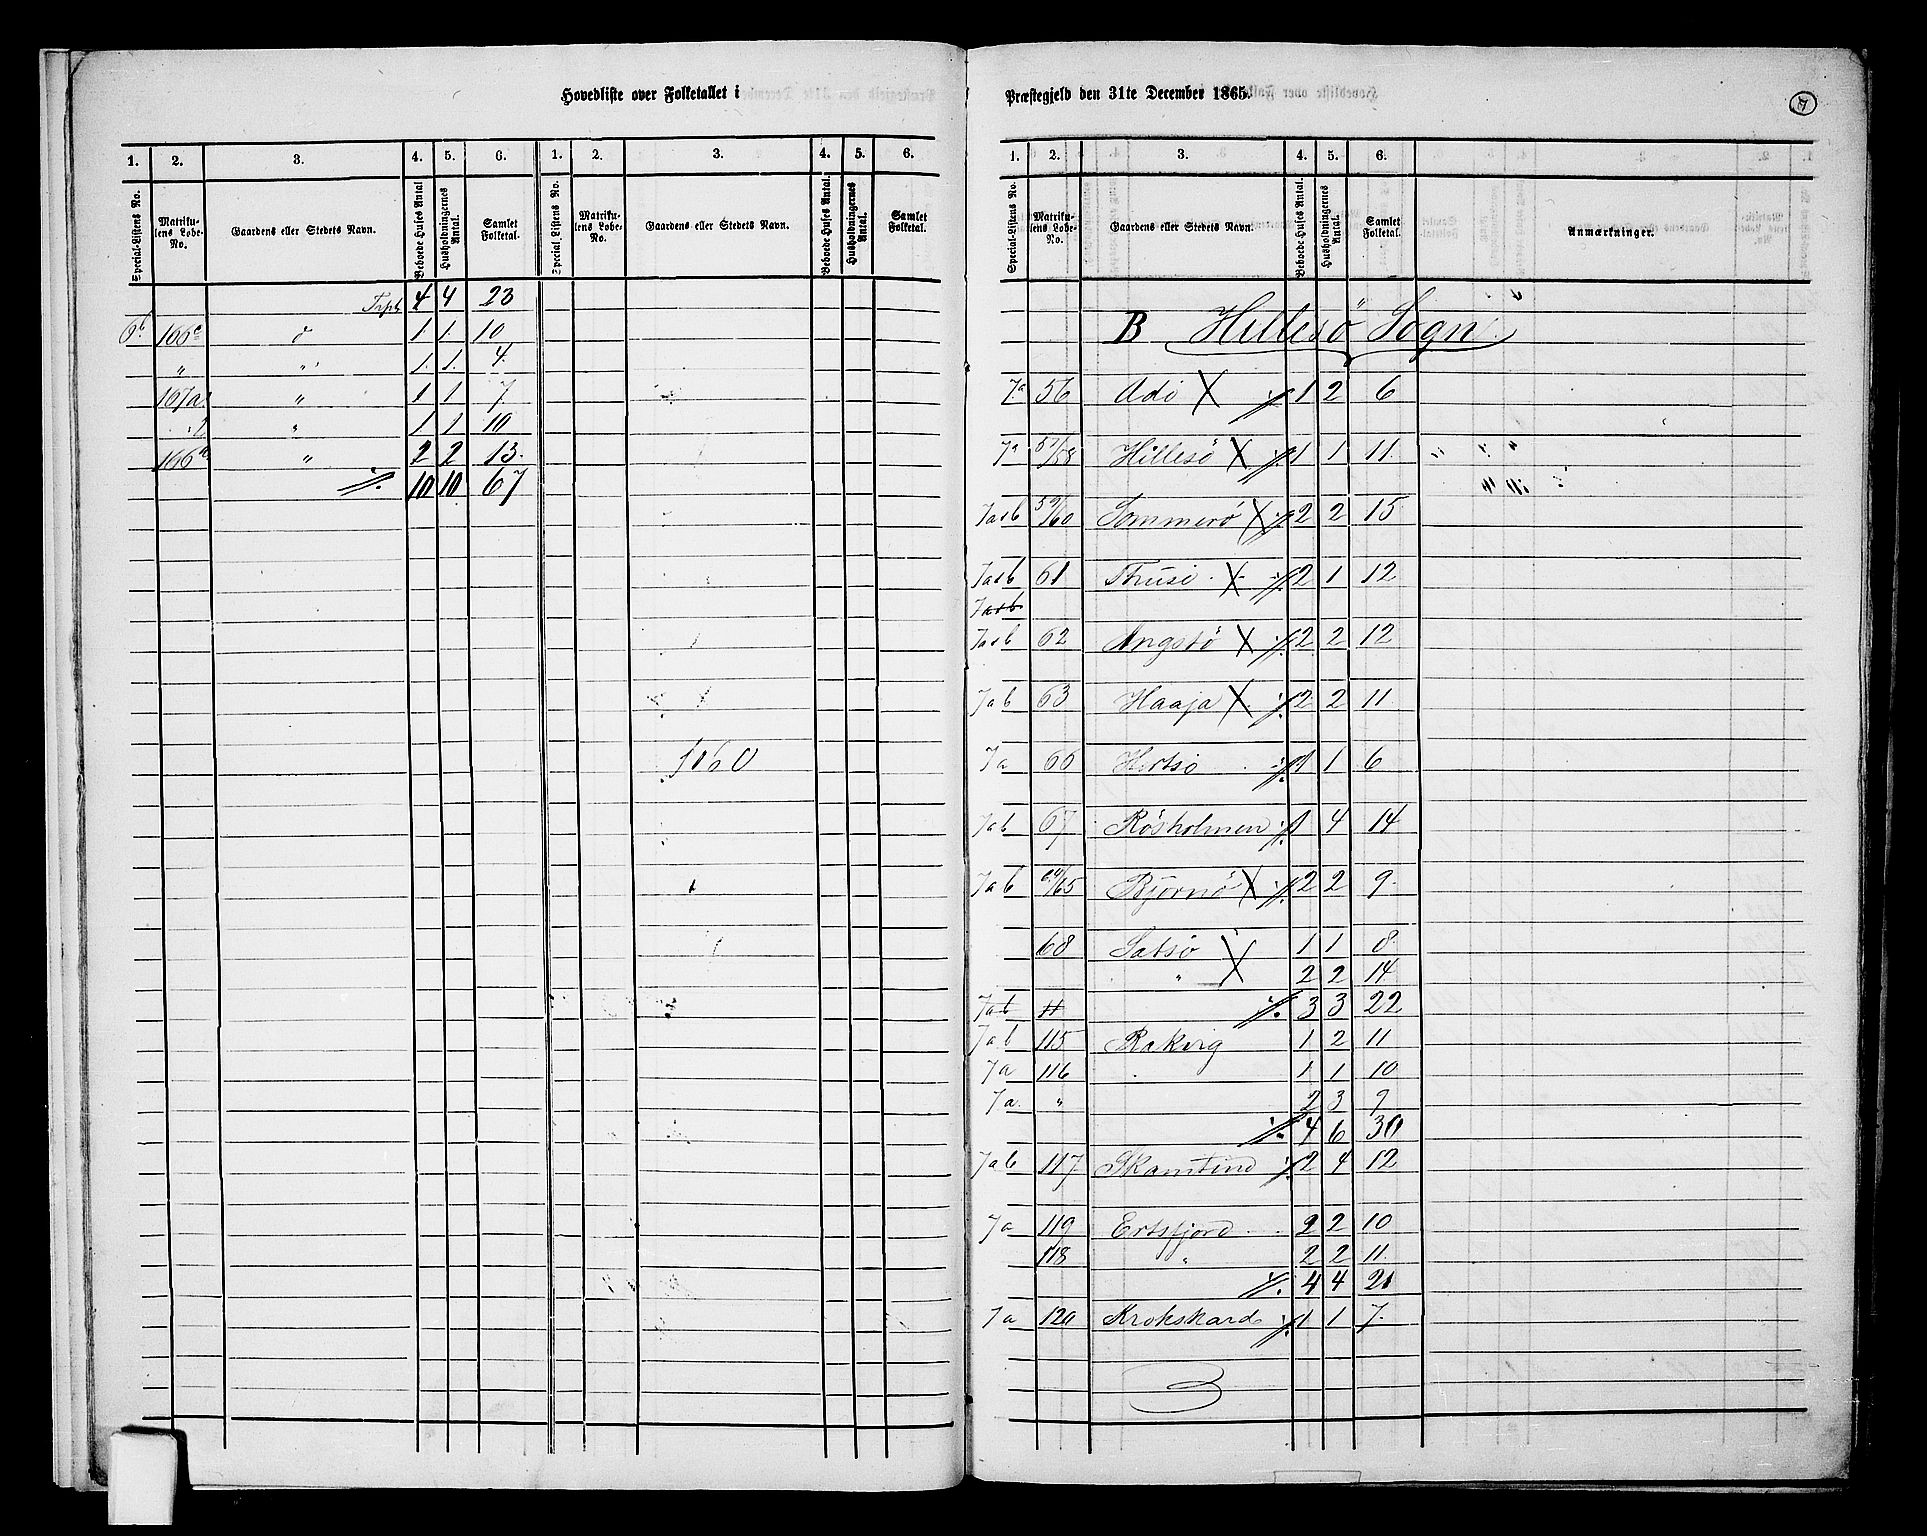 Hovedliste over Folketallet i
1. 2. 3. 4. 5. 6. 1. 2. 3. 4. 5. 6.
Special-Listens No. Matrikulens Løbe-No. Gaardens eller Stedets Navn. Beboede Huses Antal Husholdningernes Antal. Samlet Folketal. Special-Listens No. Matrikulens Løbe-No. Gaardens eller Stedets Navn. Beboede Huses Antal. Husholdningernes Antal. Samlet Folketal.
Trpt 4 4 23
6b 166c d 1 1 10
" " 1 1 4
167a " 1 1 7
" 1 1 10
166a " 2 2 13
10 10 67
1060
Præstegjeld den 31te December 1865.
7
1. 2. 3. 4. 5. 6.
Special-Listens No. Matrikulens Løbe-No. Gaardens eller Stedets Navn. Beboede Huses Antal. Husholdningernes Antal. Samlet Folketal. Anmærkninger.
B Hillesö Sogn
7a 56 Udö X 1 2 6
7a 57/58 Hillesö X 1 1 11
7a&b 59/60 Sommerö X 2 2 15
7a&b 61 Thusö X 2 1 12
7a&b
7a&b 62 Angstö X 2 2 12
7ab 63 Haaja X 2 2 11
7a 66 Hertsö 1 1 6
7ab 67 Rösholmen 1 4 14
7ab 64/65 Björnö X 2 2 9
68 Satsö 1 1 8
" X 2 2 14
7ab 11 3 3 22
7ab 115 Rakvig 1 2 11
7a 116 1 1 10
7a " 2 3 9
4 6 30
7ab 117 Skamtind 2 4 12
7a 119 Ertsfjord 2 2 10
118 " 2 2 11
4 4 21
7a 120 Krokskard 1 1 7